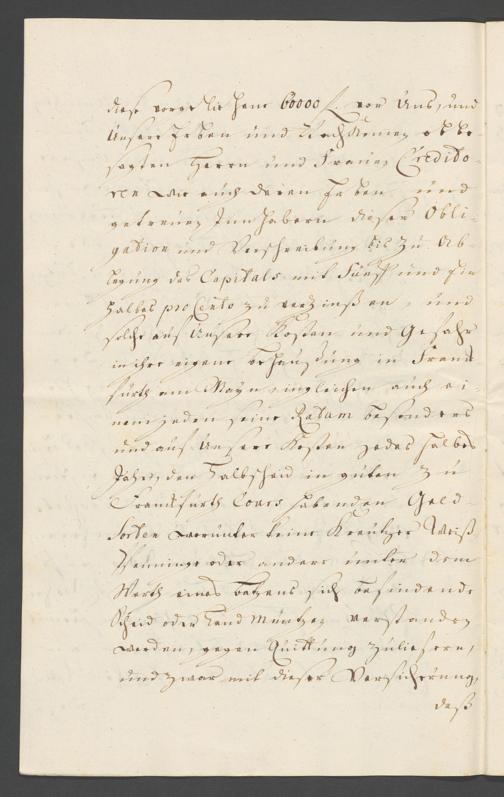 diese vorgeliehene 60000 f. von Uns, und
Unsere Erben und Nachkommen obbe-
sagten Herrn und Frauen Credito-
ren wie auch deren Erben und
getreuen Innhabern dieser Obli-
gation und Verschreibung biß zu Ab-
legung des Capitals mit Fünff und ein
halbes pro Cento zu verzinßen, und
solche auf Unsere Kosten und Gefahr
in ihre eigene Behaußung in Franck
furth am Mayn, ingleichen auch ei-
nem jeden seine Ratam besonders
und auf Unsere Kosten jedes halbes
Jahr, den Halbscheid in guten zu
Franckfurth Cours habenden Geld-
Sorten worunter keine Kreutzer Weiß
Pfenninge oder andere unter dem
Werth eines Batzens sich befindende
Scheid oder Land Müntzen verstanden
werden, gegen Quittung zu liefern,
und zwar mit dieser Versicherung,
daß